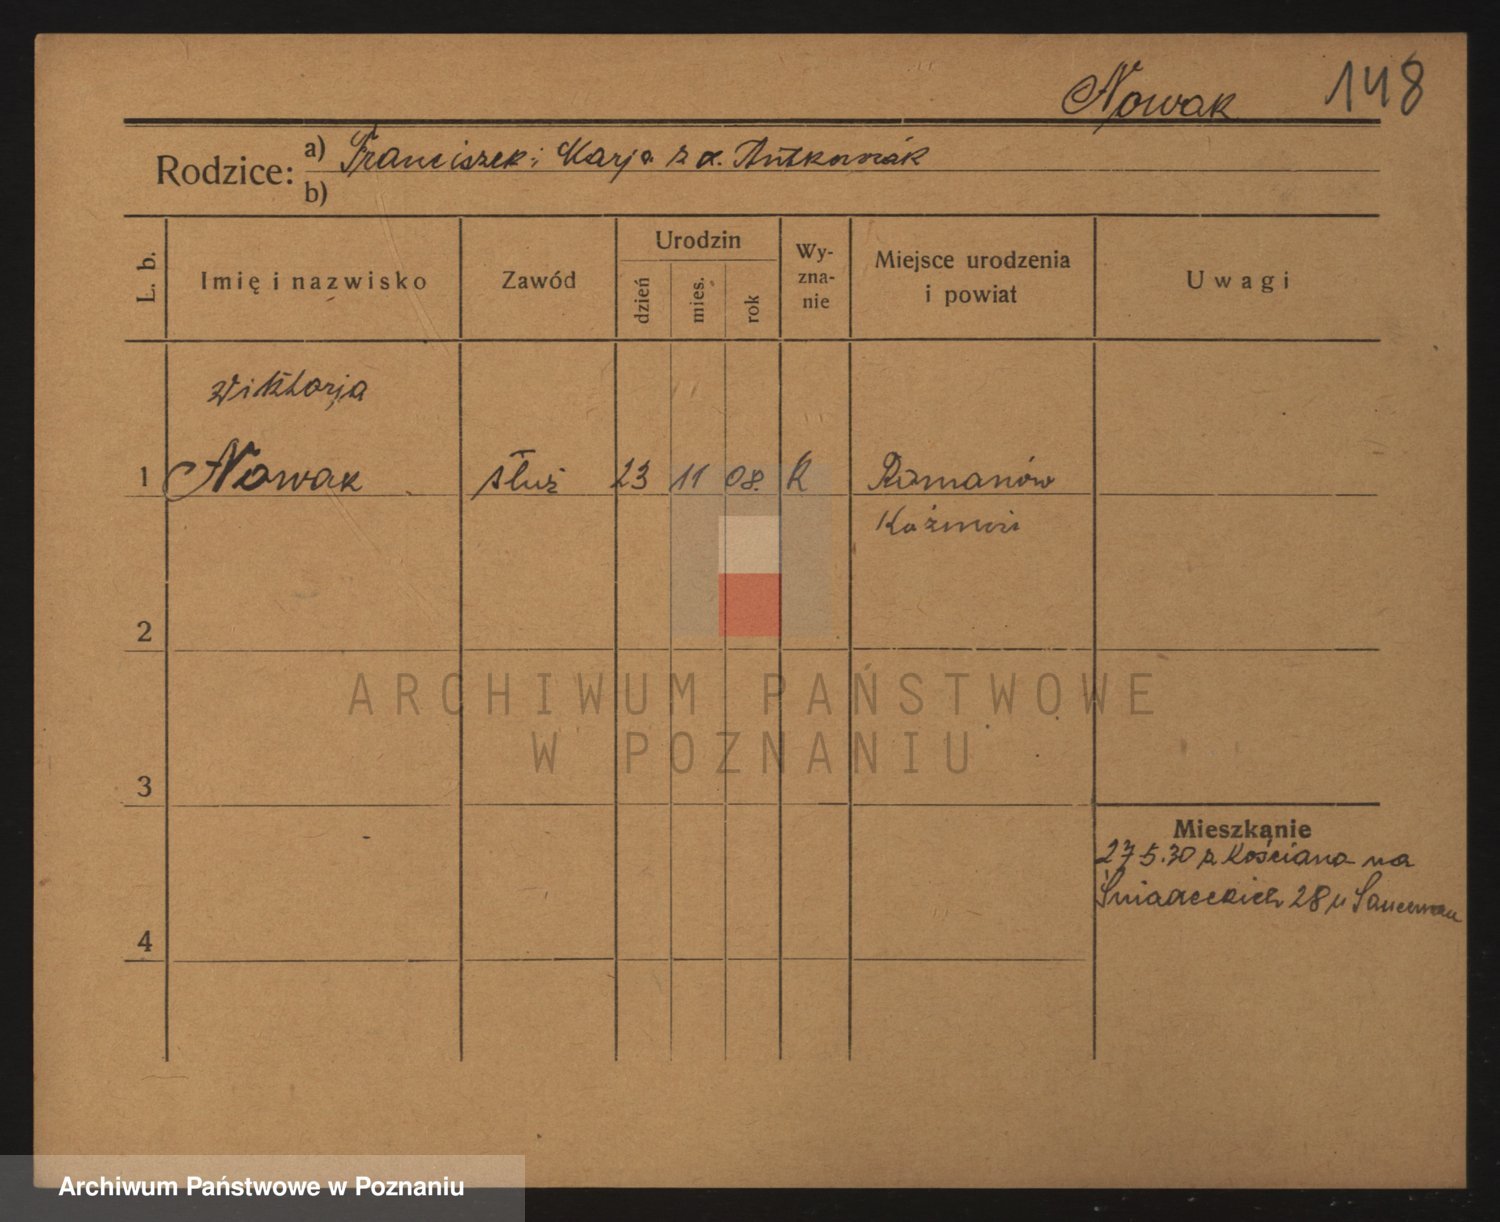 Nowak 148
Rodzice: a) Franciszek i Marja z d. Antkowiak
b)
L. b.
Imię i nazwisko
Zawód
Urodzin
dzień
mies.
rok
Wy-
zna-
nie
Miejsce urodzenia
i powiat
Uwagi
Wiktorja
1 Nowak służ 23 11 08. K Romanów
2
3
4
Mieszkanie
27 5.30 z Kościana na
Śniadeckich 28 u
ARCHIWUM PAŃSTWOWE
W POZNANIU
Archiwum Państwowe w Poznaniu